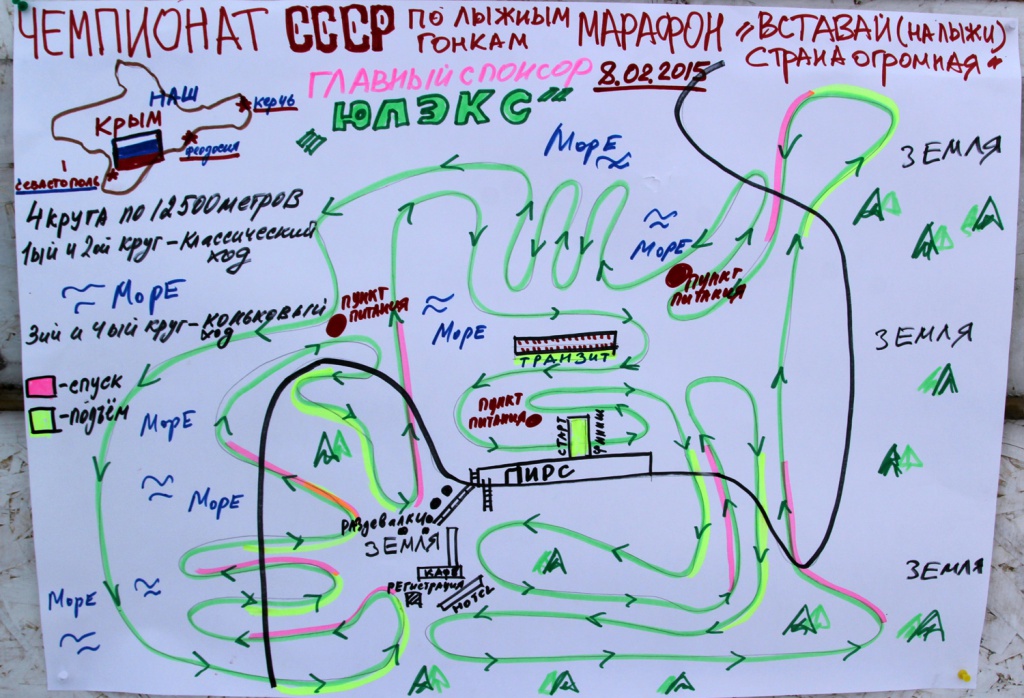 ЧЕМПИОНАТ СССР ПО ЛЫЖНЫМ ГОНКАМ МАРАФОН „ВСТАВАЙ (НА ЛЫЖИ) СТРАНА ОГРОМНАЯ“
ГЛАВНЫЙ СПОНСОР
8.02.2015
„ЮЛЭКС“
НАШ
КРЫМ
КЕРЧЬ
ФЕОДОСИЯ
СЕВАСТОПОЛЬ
4 КРУГА ПО 12500 МЕТРОВ
1ый и 2ой КРУГ – КЛАССИЧЕСКИЙ
ХОД
3ий и 4ый КРУГ – КОНЬКОВЫЙ
ХОД
-СПУСК
-ПОДЪЁМ
МОРЕ
МОРЕ
МОРЕ
МОРЕ
МОРЕ
МОРЕ
МОРЕ
ЗЕМЛЯ
ЗЕМЛЯ
ЗЕМЛЯ
ПУНКТ
ПИТАНИЯ
ПУНКТ
ПИТАНИЯ
ТРАНЗИТ
ПУНКТ
ПИТАНИЯ
СТАРТ
ФИНИШ
ПИРС
РАЗДЕВАЛКИ
ЗЕМЛЯ
КАФЕ
РЕГИСТРАЦИЯ